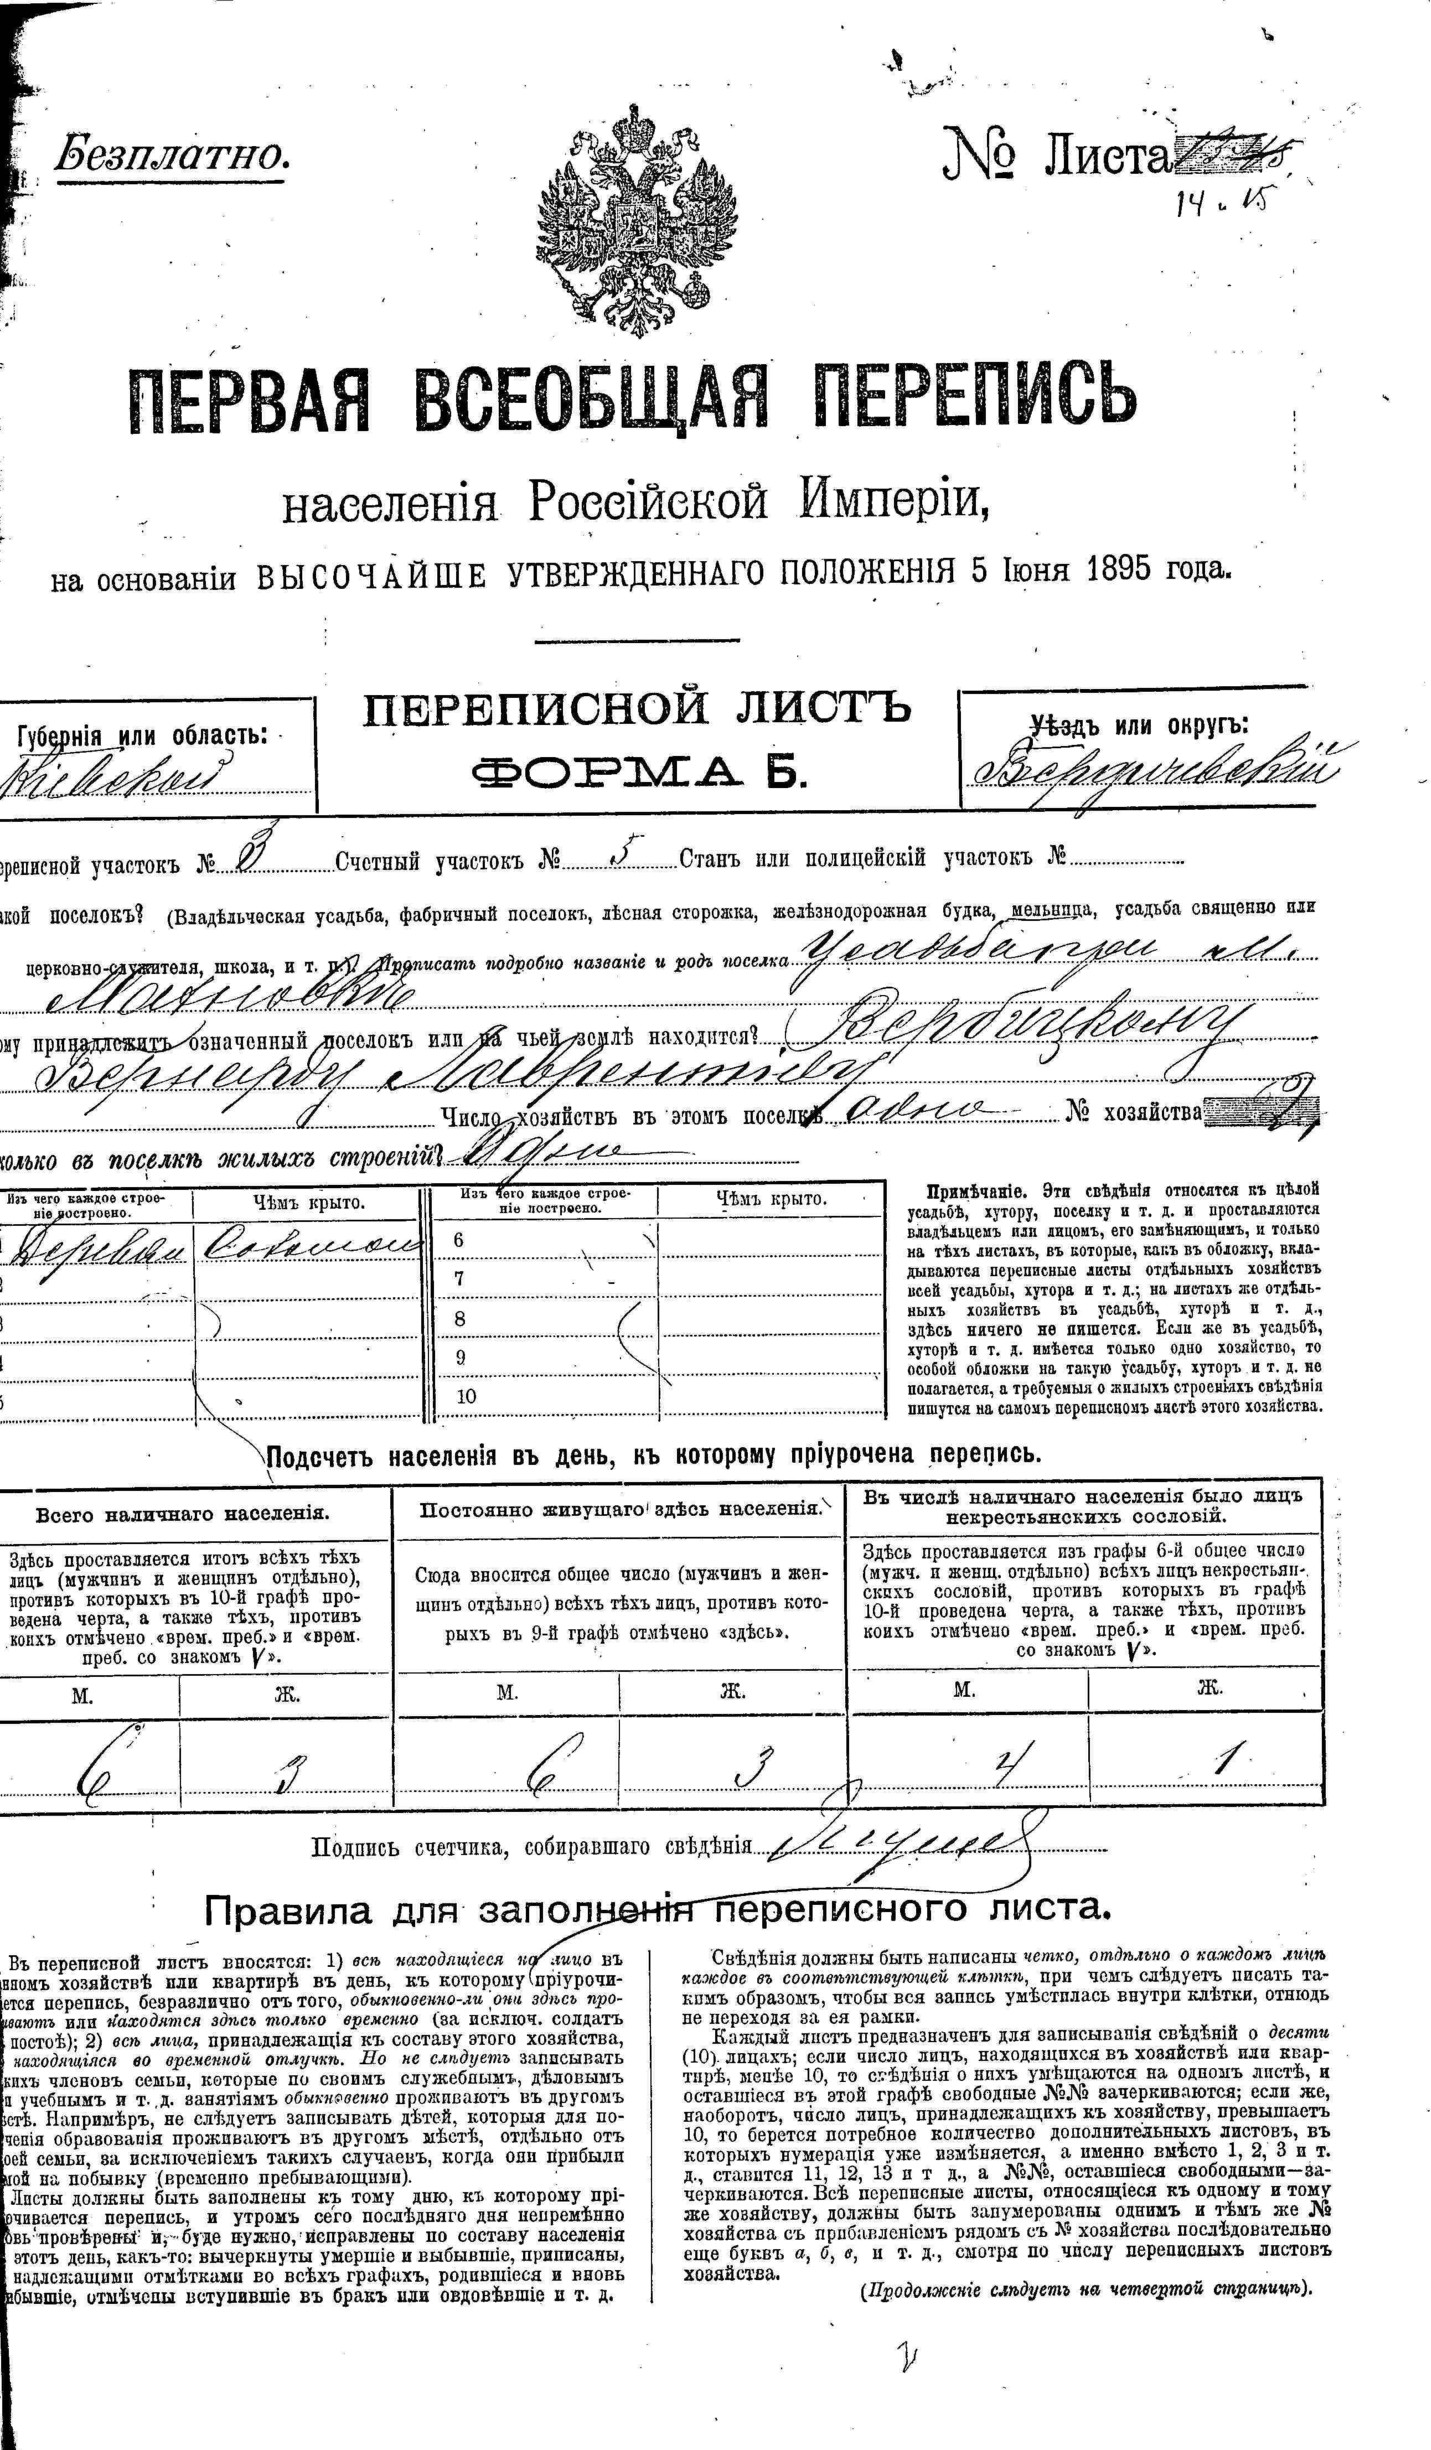 Безплатно.
№ Листа
14 и 15
ПЕРВАЯ ВСЕОБЩАЯ ПЕРЕПИСЬ
населенія Россійской Имперіи,
на основаніи ВЫСОЧАЙШЕ УТВЕРЖДЕННАГО ПОЛОЖЕНІЯ 5 Іюня 1895 года.
Губернія или область:
Кіевской
ПЕРЕПИСНОЙ ЛИСТЪ
ФОРМА Б.
Уѣздъ или округъ:
Бердичевскій
ереписной участокъ № 3 Счетный участокъ № 5 Станъ или полицейскій участокъ №
акой поселокъ? (Владѣльческая усадьба, фабричный поселокъ, лѣсная сторожка, желѣзнодорожная будка, мельница, усадьба священно или
церковно-служителя, школа, и т. п.). Прописать подробно названіе и родъ поселка Усадьба при м.
Махновкѣ
ому принадлежитъ означенный поселокъ или на чьей землѣ находится? Вербицкому
Бернарду Лаврентіеву
Число хозяйствъ въ этомъ поселкѣ одно № хозяйства 2
колько въ поселкѣ жилыхъ строеній? Одно
Изъ чего каждое строе-
ніе построено.
Чѣмъ крыто.
Изъ чего каждое строе-
ніе построено.
Чѣмъ крыто.
Деревян Соломой
6
7
8
9
10
Примѣчаніе. Эти свѣдѣнія относятся къ цѣлой
усадьбѣ, хутору, поселку и т. д. и проставляются
владѣльцемъ или лицомъ, его замѣняющимъ, и только
на тѣхъ листахъ, въ которые, какъ въ обложку, вкла-
дываются переписные листы отдѣльныхъ хозяйствъ
всей усадьбы, хутора и т. д.; на листахъ же отдѣль-
ныхъ хозяйствъ въ усадьбѣ, хуторѣ и т. д.,
здѣсь ничего не пишется. Если же въ усадьбѣ,
хуторѣ и т. д. имѣется только одно хозяйство, то
особой обложки на такую усадьбу, хуторъ и т. д. не
полагается, а требуемыя о жилыхъ строеніяхъ свѣдѣнія
пишутся на самомъ переписномъ листѣ этого хозяйства.
Подсчетъ населенія въ день, къ которому пріурочена перепись.
Всего наличнаго населенія.
Здѣсь проставляется итогъ всѣхъ тѣхъ
лицъ (мужчинъ и женщинъ отдѣльно),
противъ которыхъ въ 10-й графѣ про-
ведена черта, а также тѣхъ, противъ
коихъ отмѣчено «врем. преб.» и «врем.
преб. со знакомъ V».
Постоянно живущаго здѣсь населенія.
Сюда вносится общее число (мужчинъ и жен-
щинъ отдѣльно) всѣхъ тѣхъ лицъ, противъ кото-
рыхъ въ 9-й графѣ отмѣчено «здѣсь».
Въ числѣ наличнаго населенія было лицъ
некрестьянскихъ сословій.
Здѣсь проставляется изъ графы 6-й общее число
(мужч. и женщ. отдѣльно) всѣхъ лицъ некрестьян-
скихъ сословій, противъ которыхъ въ графѣ
10-й проведена черта, а также тѣхъ, противъ
коихъ отмѣчено «врем. преб.» и «врем. преб.
со знакомъ V».
М. Ж. М. Ж. М. Ж.
6 3 6 3 4 1
Подпись счетчика, собиравшаго свѣдѣнія
Правила для заполненія переписного листа.
Въ переписной листъ вносятся: 1) всѣ находящіеся на лицо въ
нномъ хозяйствѣ или квартирѣ въ день, къ которому пріурочи-
ается перепись, безразлично отъ того, обыкновенно-ли они здѣсь про-
ивютъ или находятся здѣсь только временно (за исключ. солдатъ
постоѣ); 2) всѣ лица, принадлежащія къ составу этого хозяйства,
находящіяся во временной отлучкѣ. Но не слѣдуетъ записывать
кихъ членовъ семьи, которые по своимъ служебнымъ, дѣловымъ
и учебнымъ и т. д. занятіямъ обыкновенно проживаютъ въ другомъ
стѣ. Напримѣръ, не слѣдуетъ записывать дѣтей, которыя для по-
ченія образованія проживаютъ въ другомъ мѣстѣ, отдѣльно отъ
оей семьи, за исключеніемъ такихъ случаевъ, когда они прибыли
мой на побывку (временно пребывающими).
Листы должны быть заполнены къ тому дню, къ которому прі-
очивается перепись, и утромъ сего послѣдняго дня непремѣнно
овь провѣрены и, буде нужно, исправлены по составу населенія
этотъ день, какъ-то: вычеркнуты умершіе и выбывшіе, приписаны,
надлежащими отмѣтками во всѣхъ графахъ, родившіеся и вновь
ибывшіе, отмѣчены вступившіе въ бракъ или овдовѣвшіе и т. д.
Свѣдѣнія должны быть написаны четко, отдѣльно о каждомъ лицѣ
каждое въ соотвѣтствующей клѣткѣ, при чемъ слѣдуетъ писать та-
кимъ образомъ, чтобы вся запись умѣстилась внутри клѣтки, отнюдь
не переходя за ея рамки.
Каждый листъ предназначенъ для записыванія свѣдѣній о десяти
(10) лицахъ; если число лицъ, находящихся въ хозяйствѣ или квар-
тирѣ, менѣе 10, то свѣдѣнія о нихъ умѣщаются на одномъ листѣ, и
оставшіеся въ этой графѣ свободные №№ зачеркиваются; если же,
наоборотъ, число лицъ, принадлежащихъ къ хозяйству, превышаетъ
10, то берется потребное количество дополнительныхъ листовъ, въ
которыхъ нумерація уже измѣняется, а именно вмѣсто 1, 2, 3 и т.
д., ставится 11, 12, 13 и т д., а №№, оставшіеся свободными—за-
черкиваются. Всѣ переписные листы, относящіеся къ одному и тому
же хозяйству, должны быть занумерованы однимъ и тѣмъ же №
хозяйства съ прибавленіемъ рядомъ съ № хозяйства послѣдовательно
еще буквъ а, б, в, и т. д., смотря по числу переписныхъ листовъ
хозяйства.
(Продолженіе слѣдуетъ на четвертой страницѣ).